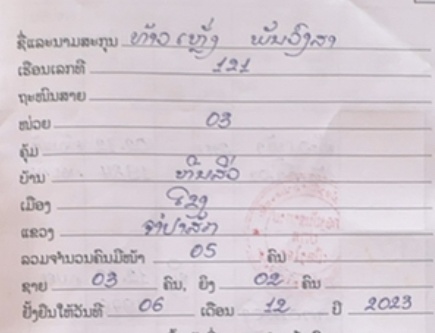 ຊື່ແລະນາມສະກຸນ ທ້າວ ເຫຼັ້ງ ພັນວົງສາ
ເຮືອນເລກທີ 121
ຖະໜົນສາຍ
ໜ່ວຍ 03
ຄຸ້ມ
ບ້ານ ຫີນສິ່ວ
ເມືອງ ໂຂງ
ແຂວງ ຈຳປາສັກ
ລວມຈຳນວນຄົນມີໜ້າ 05 ຄົນ
ຊາຍ 03 ຄົນ, ຍິງ 02 ຄົນ
ຢັ້ງຢືນໃຫ້ວັນທີ 06 ເດືອນ 12 ປີ 2023